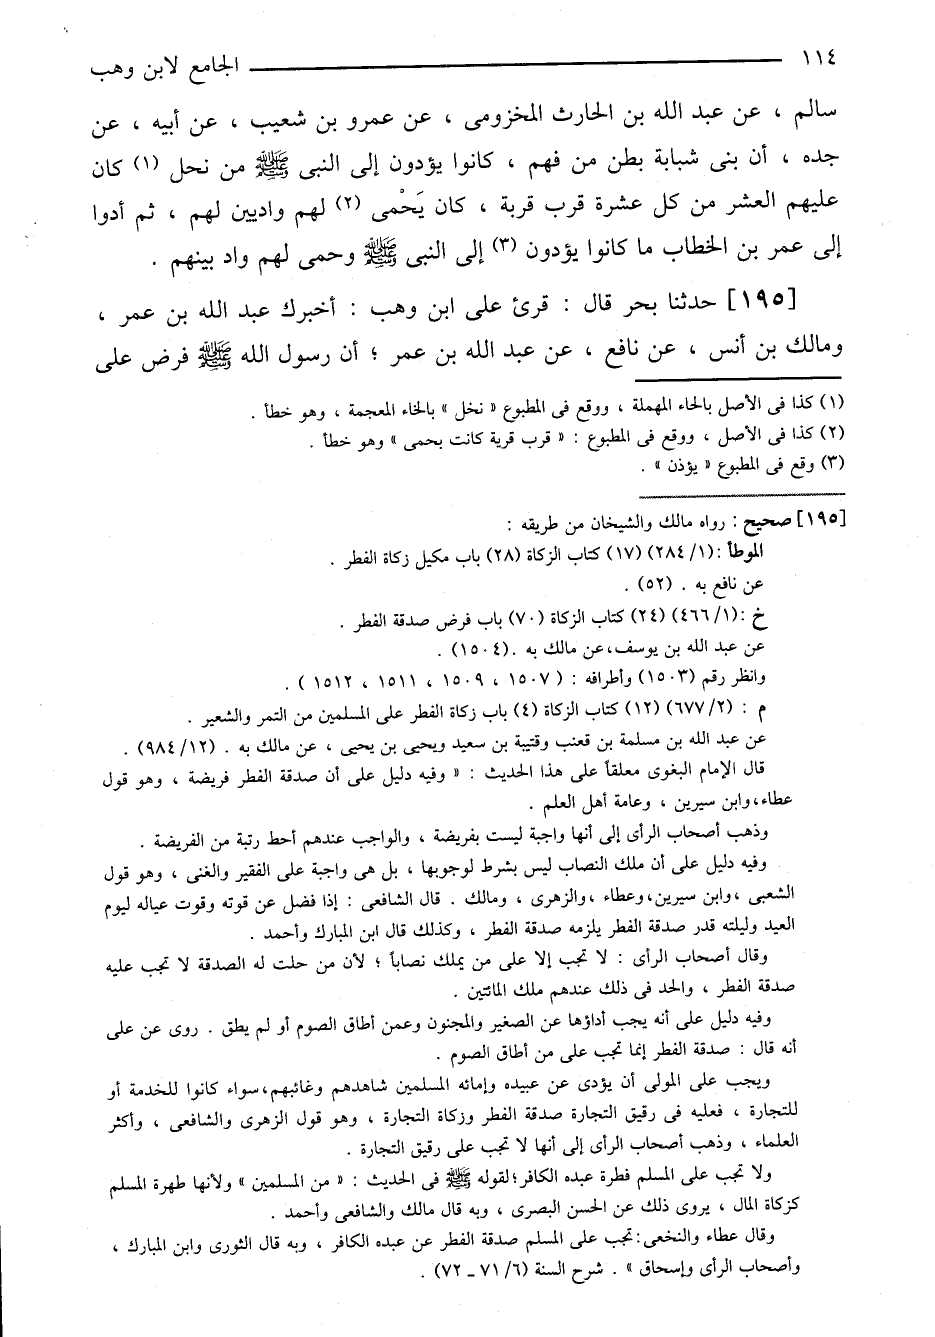 ١١٤ الجامع لابن وهب
سالم ، عن عبد الله بن الحارث المخزومى ، عن عمرو بن شعيب ، عن أبيه ، عن
جده ، أن بنى شبابة بطن من فهم ، كانوا يؤدون إلى النبى ﷺ من نحل (١) كان
عليهم العشر من كل عشرة قرب قربة ، كان يَحْمى (٢) لهم واديين لهم ، ثم أدوا
إلى عمر بن الخطاب ما كانوا يؤدون (٣) إلى النبى ﷺ وحمى لهم واد بينهم .
[١٩٥] حدثنا بحر قال : قرئ على ابن وهب : أخبرك عبد الله بن عمر ،
ومالك بن أنس ، عن نافع ، عن عبد الله بن عمر ؛ أن رسول الله ﷺ فرض على
(١) كذا فى الأصل بالحاء المهملة ، ووقع فى المطبوع « نخل » بالخاء المعجمة ، وهو خطأ .
(٢) كذا فى الأصل ، ووقع فى المطبوع : « قرب قرية كانت بحمى » وهو خطأ .
(٣) وقع فى المطبوع « يؤذن » .
[١٩٥] صحيح : رواه مالك والشيخان من طريقه :
الموطأ :(١/ ٢٨٤) (١٧) كتاب الزكاة (٢٨) باب مكيل زكاة الفطر .
عن نافع به . (٥٢) .
خ :(١/ ٤٦٦) (٢٤) كتاب الزكاة (٧٠) باب فرض صدقة الفطر .
عن عبد الله بن يوسف،عن مالك به .(١٥٠٤) .
وانظر رقم (١٥٠٣) وأطرافه : ( ١٥٠٧ ، ١٥٠٩ ، ١٥١١ ، ١٥١٢ ) .
م : (٢/ ٦٧٧) (١٢) كتاب الزكاة (٤) باب زكاة الفطر على المسلمين من التمر والشعير .
عن عبد الله بن مسلمة بن قعنب وقتيبة بن سعيد ويحيى بن يحيى ، عن مالك به . (١٢/ ٩٨٤) .
قال الإمام البغوى معلقاً على هذا الحديث : « وفيه دليل على أن صدقة الفطر فريضة ، وهو قول
عطاء،وابن سيرين ، وعامة أهل العلم .
وذهب أصحاب الرأى إلى أنها واجبة ليست بفريضة ، والواجب عندهم أحط رتبة من الفريضة .
وفيه دليل على أن ملك النصاب ليس بشرط لوجوبها ، بل هى واجبة على الفقير والغنى ، وهو قول
الشعبى ،وابن سيرين،وعطاء ،والزهرى ، ومالك . قال الشافعى : إذا فضل عن قوته وقوت عياله ليوم
العيد وليلته قدر صدقة الفطر يلزمه صدقة الفطر ، وكذلك قال ابن المبارك وأحمد .
وقال أصحاب الرأى : لا تجب إلا على من يملك نصاباً ؛ لأن من حلت له الصدقة لا تجب عليه
صدقة الفطر ، والحد فى ذلك عندهم ملك المائتين .
وفيه دليل على أنه يجب أداؤها عن الصغير والمجنون وعمن أطاق الصوم أو لم يطق . روى عن على
أنه قال : صدقة الفطر إنما تجب على من أطاق الصوم .
ويجب على المولى أن يؤدى عن عبيده وإمائه المسلمين شاهدهم وغائبهم،سواء كانوا للخدمة أو
للتجارة ، فعليه فى رقيق التجارة صدقة الفطر وزكاة التجارة ، وهو قول الزهرى والشافعى ، وأكثر
العلماء ، وذهب أصحاب الرأى إلى أنها لا تجب على رقيق التجارة .
ولا تجب على المسلم فطرة عبده الكافر؛لقوله ﷺ فى الحديث : « من المسلمين » ولأنها طهرة المسلم
كزكاة المال ، يروى ذلك عن الحسن البصرى ، وبه قال مالك والشافعى وأحمد .
وقال عطاء والنخعى:تجب على المسلم صدقة الفطر عن عبده الكافر ، وبه قال الثورى وابن المبارك ،
وأصحاب الرأى وإسحاق » . شرح السنة (٦/ ٧١ ـ ٧٢) .